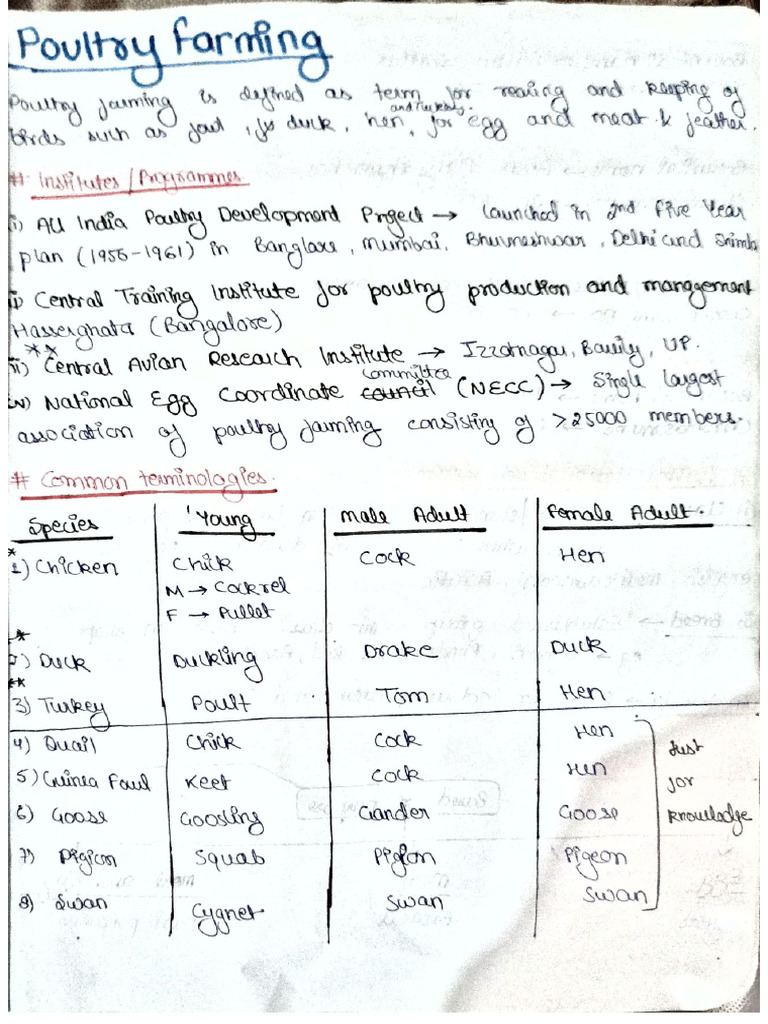 Poultry farming
Poultry farming is defined as term for rearing and keeping of
and turkey.
birds such as foul, duck, hen, for egg and meat & feather.
# Institutes/Programmes
i) All India Poultry Development Project → Launched in 2nd five Year
plan (1956-1961) in Banglore, Mumbai, Bhuvneshwar, Delhi and Shimla
ii) Central Training Institute for poultry production and management
Hasserghata (Bangalore)
**
iii) Central Avian Research Institute → Izzatnagar, Bareily, UP.
committee
iv) National Egg Coordinate council (NECC) → Single largest
association of poultry farming consisting of >25000 members.
# Common terminologies.
Species Young Male Adult Female Adult.
*
1) Chicken Chick Cock Hen
M → Cockrel
F → Pullet
*
2) Duck Duckling Drake Duck
**
3) Turkey Poult Tom Hen
4) Quail Chick Cock Hen
5) Guinea Faul Keet Cock Hen
6) Goose Goosling Gander Goose
7) Pigion Squab Pigeon Pigeon
8) Swan Cygnet Swan Swan
Just
for
knowledge